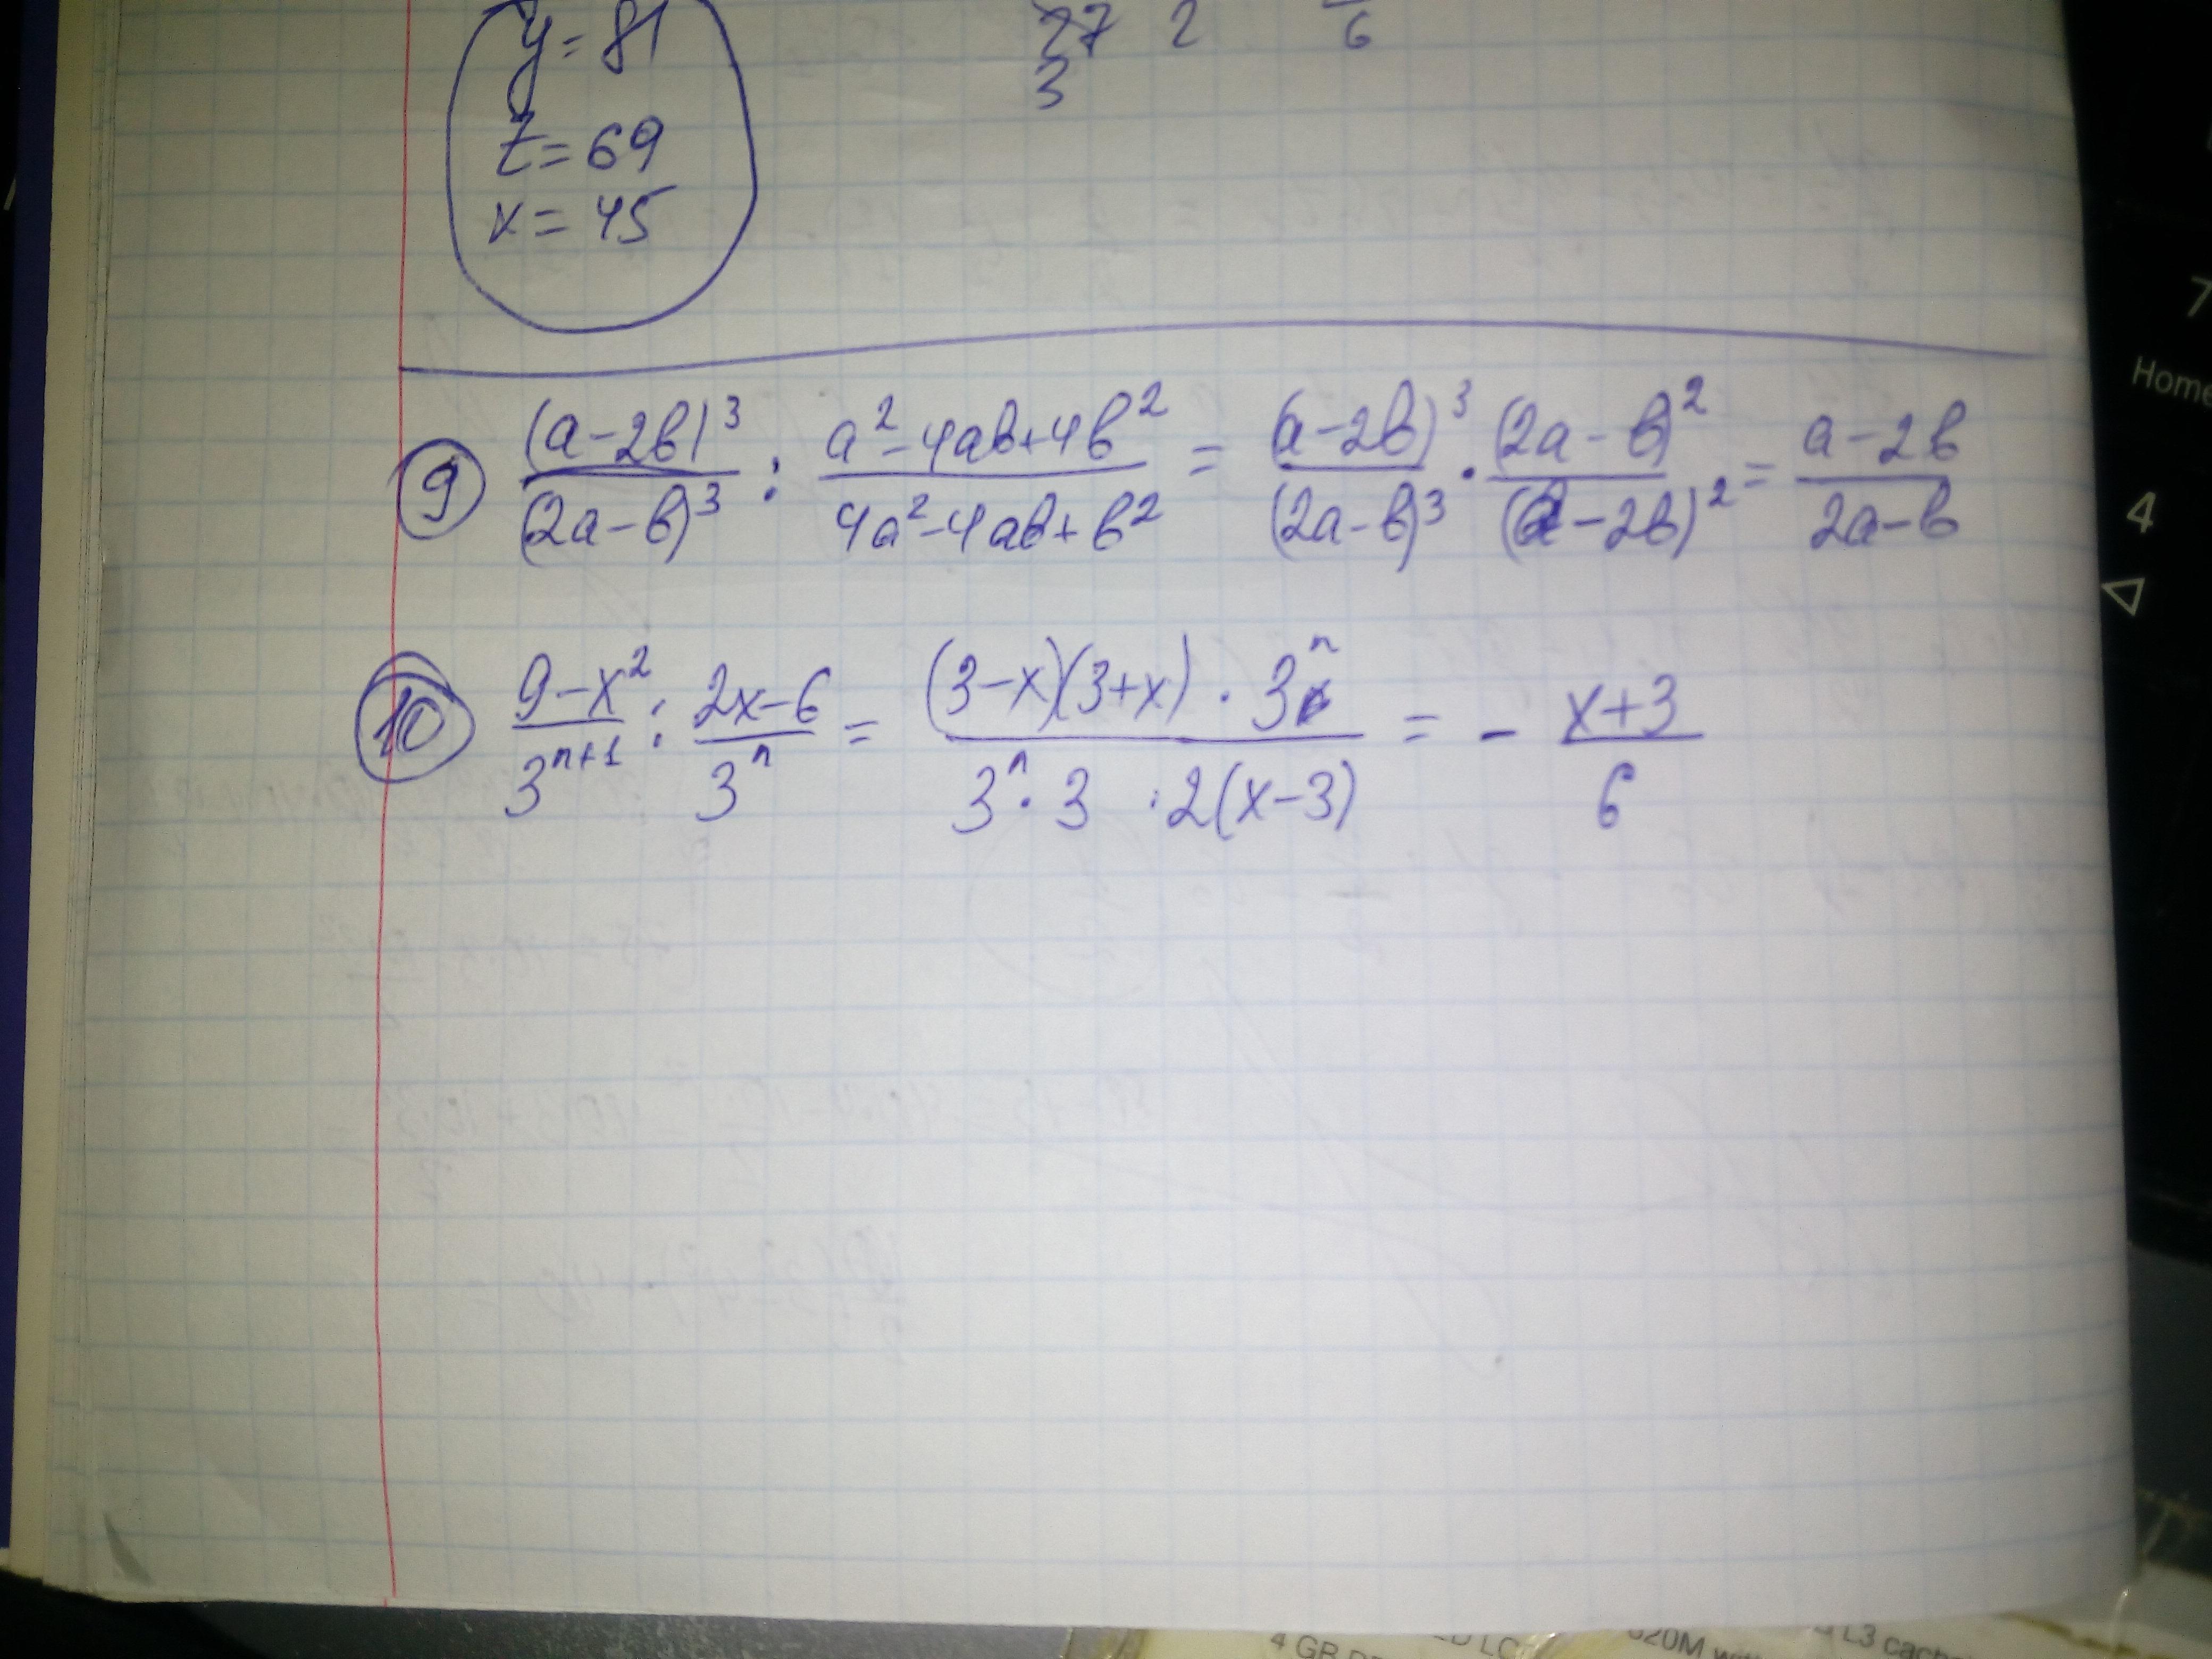 y = 81
z = 69
x = 45
27 2 6
3
9 (a-2b)³/(2a-b)³ : (a²-4ab+4b²)/(4a²-4ab+b²) = (a-2b)³/(2a-b)³ · (2a-b)²/(a-2b)² = (a-2b)/(2a-b)
10 (9-x²)/3ⁿ⁺¹ : (2x-6)/3ⁿ = ((3-x)(3+x) · 3ⁿ)/(3ⁿ · 3 · 2(x-3)) = - (x+3)/6
7
Home
4
4 GB
620M
L3 cache